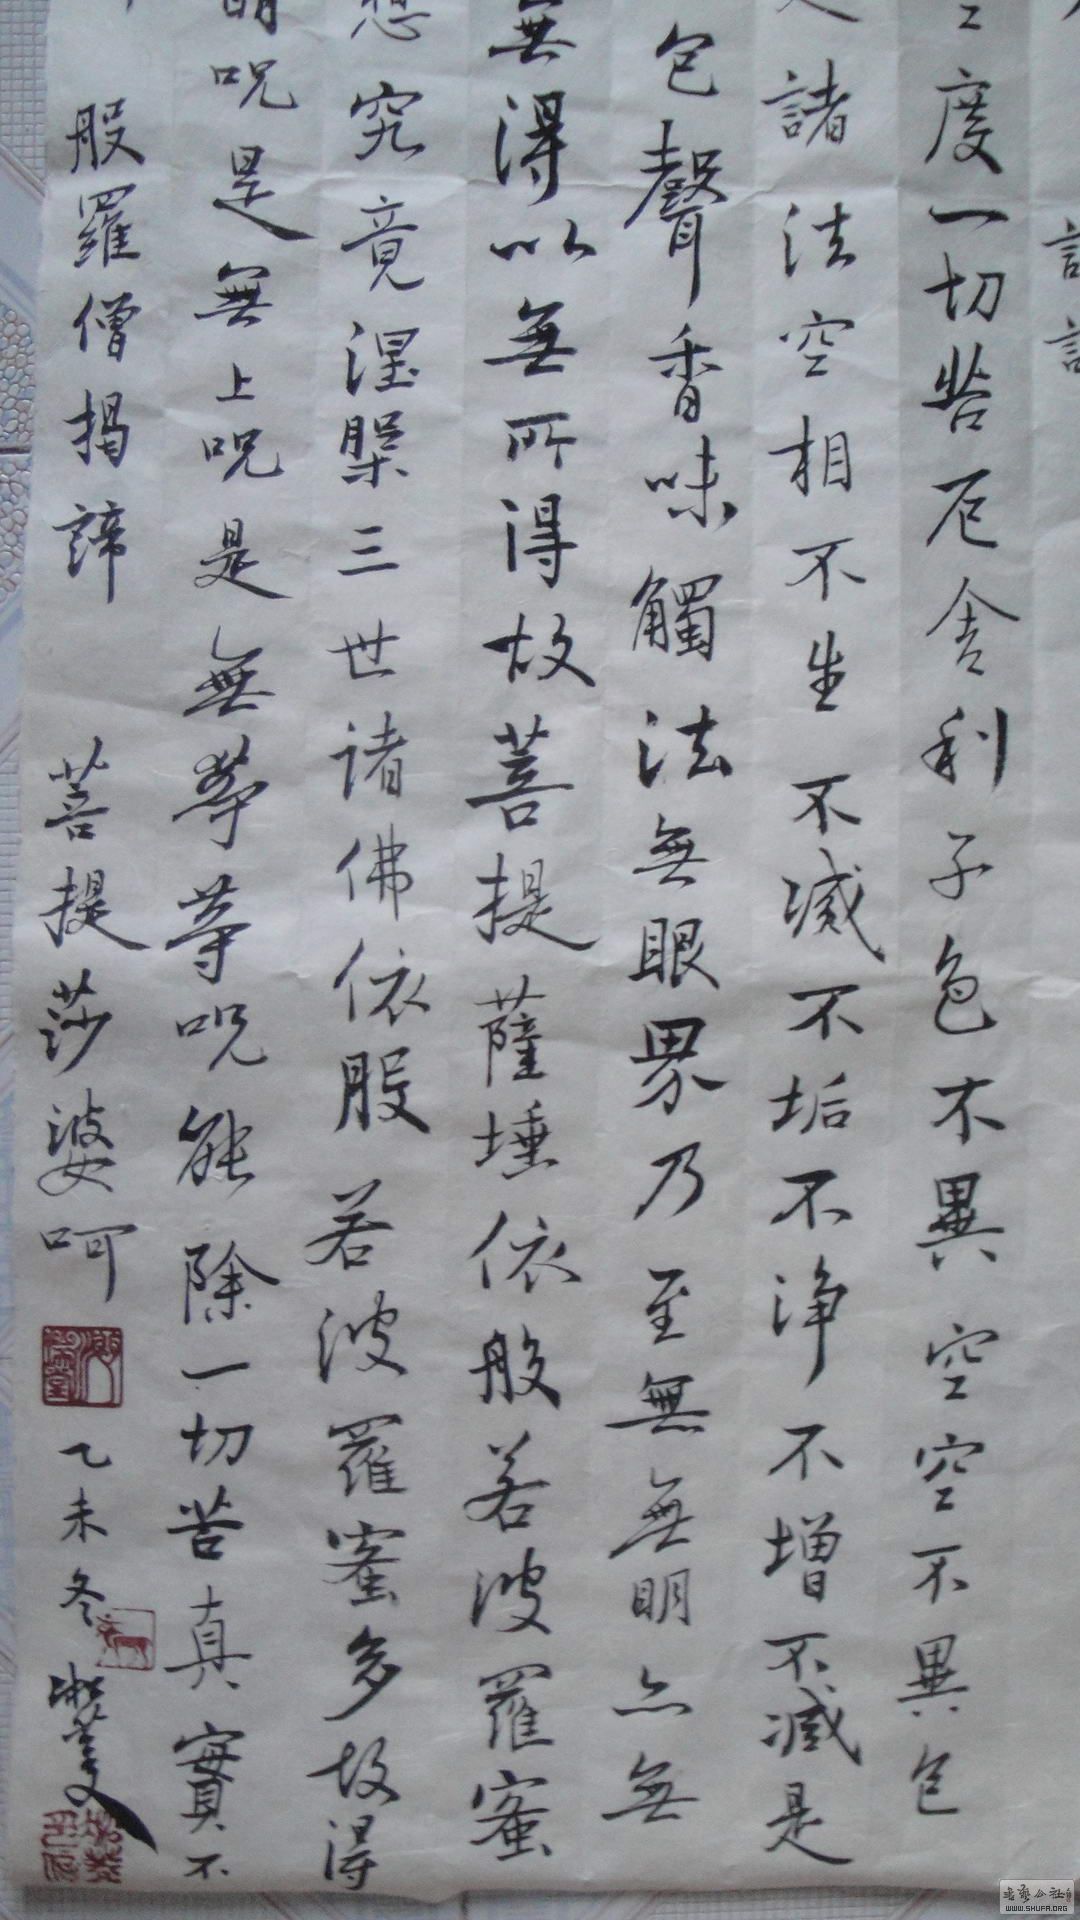 度一切苦厄舍利子色不異空空不異色
諸法空相不生不滅不垢不净不增不减是
色聲香味觸法無眼界乃至無無明亦無
無得以無所得故菩提薩埵依般若波羅蜜
想究竟涅槃三世诸佛依般若波羅蜜多故得
明呪是無上呪是無等等呪能除一切苦真實不
般羅僧揭諦 菩提莎婆呵
乙未冬
WWW.SHUFA.ORG